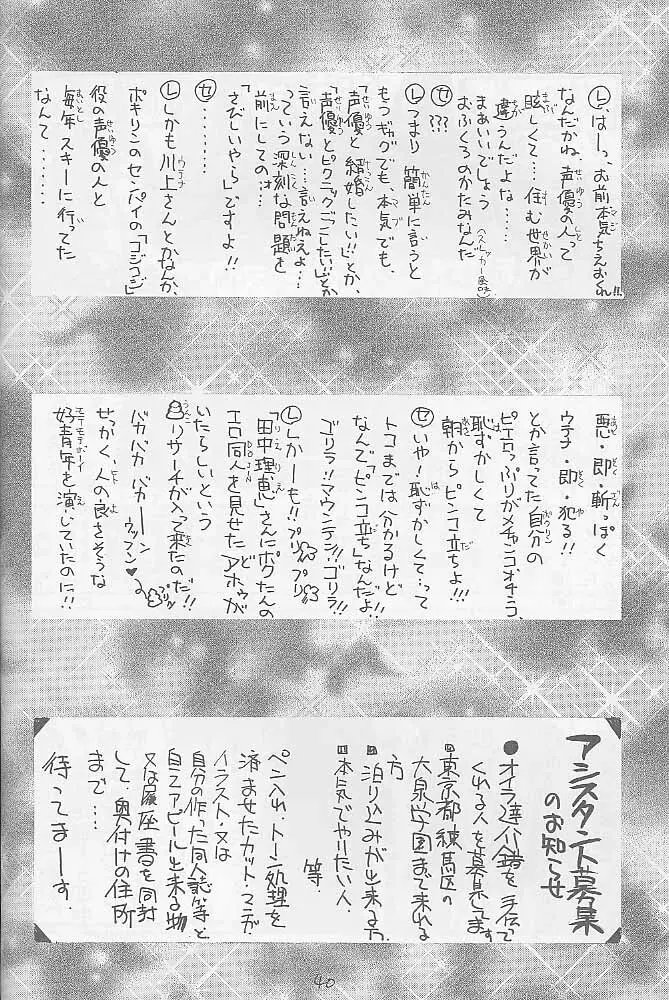 ㋹はーっ、お前本気ちえおくれ!!
なんだかね、声優の人って
眩しくて…住む世界が
違うんだよな……
まあいいでしょう
おふくろのかたみなんだ
㋝???
㋹つまり簡単に言うと
もつギャグでも、本気でも、
「声優と結婚したい!!」とか、
「声優とピクニックごこしたい!!」とか
言えない…言えねえよ…
っていう深刻な問題を
前にしてのォ…
「さびしいやら」ですよ!!
㋝………
㋹しかも川上さんとかなんか、
ポキリンのセンパイの「コジコジ」
役の声優の人と
毎年スキーに行ってた
なんて……
悪・即・斬っぽく
ウ子・即・犯る!!
とか言ってた自分の
ピエロっぷりがメチャンコオチこう、
恥ずかしくて
朝からピンコ立ちよ!!!
㋝いや!恥ずかしくて…って
トコまでは分かるけど
なんで「ピンコ立ち」なんだよ!!
ゴリラ!!マウンテン!!ゴリラ!!
㋹しかーも!!プリプリ
「田中理恵」さんにポクたんの
エロ同人を見せたアホゥが
いたらしいという
リサーチが入って来たのだ!!
バカバカバカーン
ウッフン♥
せっかく、人の良さそうな
好青年を演じていたのに!!
アシスタント募集
のお知らせ
●オイラ達の修羅を手伝って
くれる人を募集してます
■東京都練馬区の
大泉学園まで来れる
方
■泊り込みが出来る方
■本気でやりたい人、
等
ペン入れ、トーン処理を
済ませたカット・又は
イラスト・又は
自分の作った同人誌等と
自己アピール出来る物
又は履歴書を同封
して、奥付けの住所
まで…
待ってまーす。
40